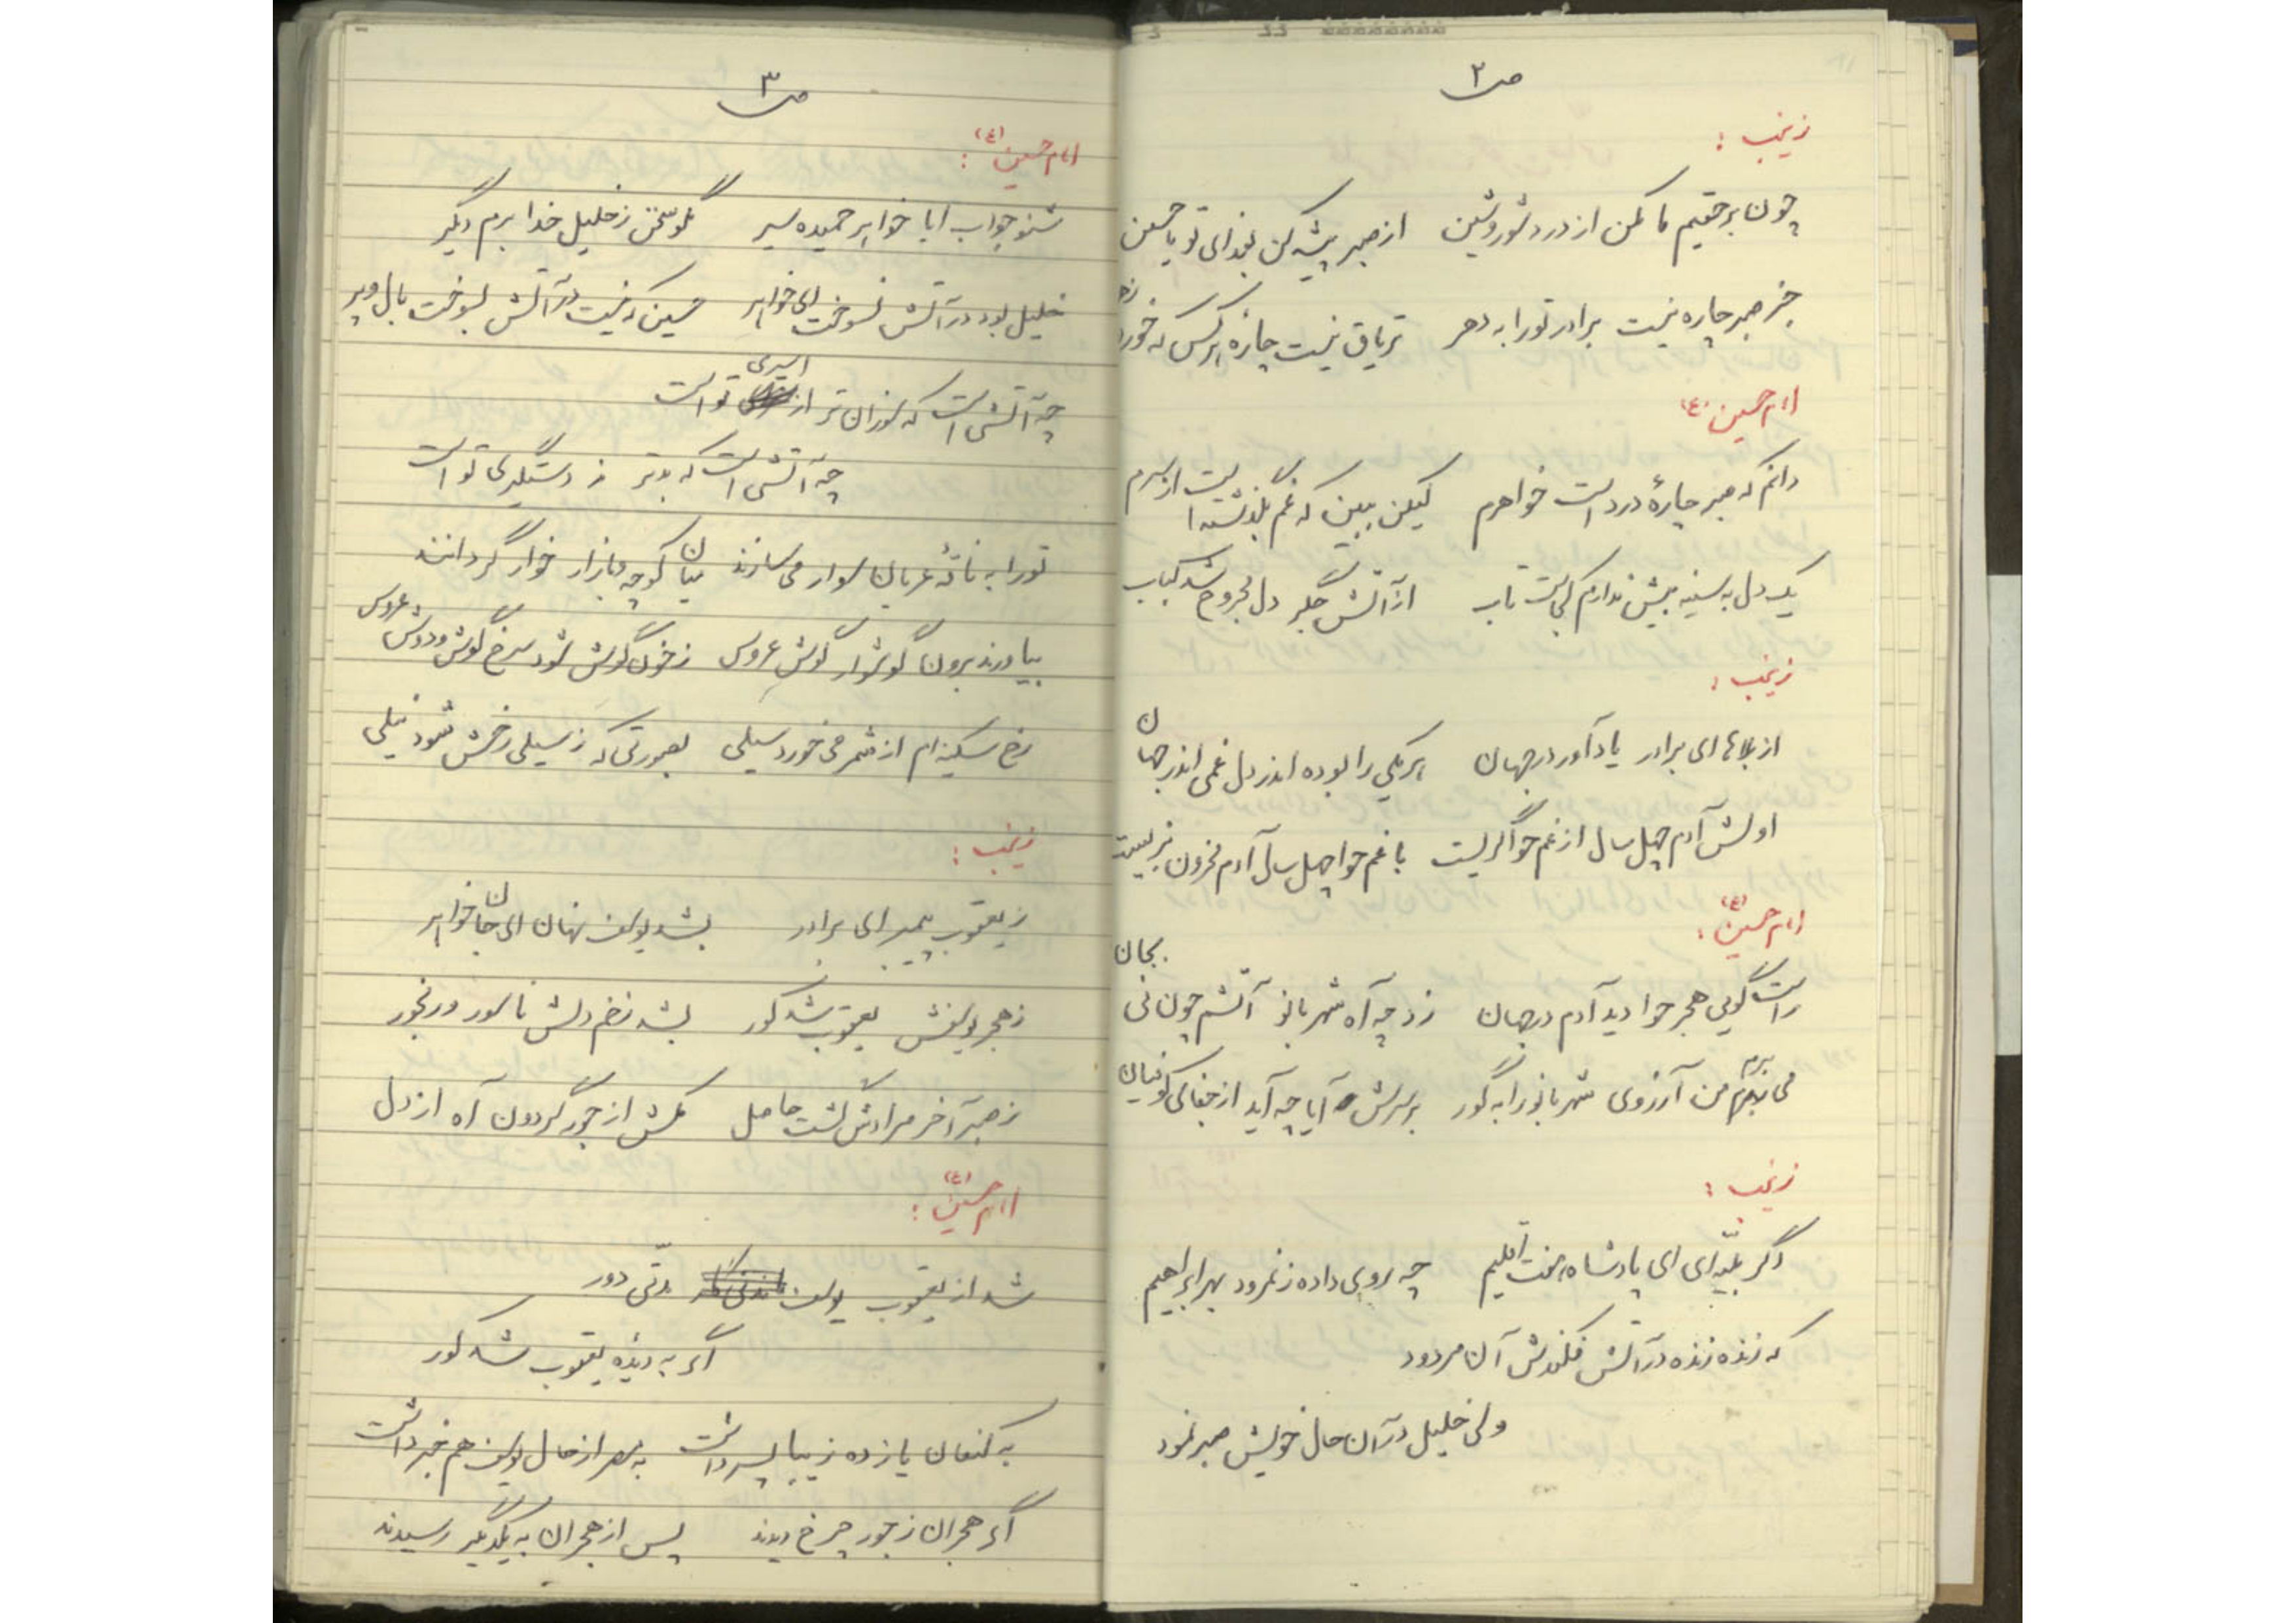 ص ۲
زینب :
چون بر حقیم ما مکن از درد شور و شین از صبر پیشه کن بفدای تو یا حسین
جز صبر چاره نیست برادر تو را به دهر تریاق نیست چارهٔ هر کس که خورد زهر
امام حسین (ع)
دانم که صبر چارهٔ درد است خواهرم لیکن ببین که غم بگذشته است از سرم
یک دل به سینه بیش ندارم کجاست تاب از آتش جگر دل مجروح شد کباب
زینب :
از بلاهای برادر یاد آور در جهان هر یکی را بوده اندر دل غمی اندر جهان
اولش آدم چهل سال از غم حوا گریست با غم حوا چهل سال آدم محزون بزیست
امام حسین (ع) :
راست گویی هجر حوا دید آدم در جهان زد چه آه شهربانو آتشم چون نی بجان
می برم من آرزوی شهربانو را به گور بر سرش آیا چه آید از جفای کوفیان
زینب :
دگر بلیّه ای ای پادشاه هفت اقلیم چه بروی داده ز نمرود بهر ابراهیم
که زنده زنده در آتش فکندش آن مردود
ولی خلیل در آن حال خویش صبر نمود
ص ۳
امام حسین (ع) :
شنو جواب ایا خواهر حمیده سیر مگو سخن ز خلیل خدا برم دیگر
خلیل بود در آتش نسوخت ای خواهر حسین که نیست در آتش بسوخت بال و پر
چه آتشی است که سوزان تر از اسیری تو است
چه آتشی است که بدتر ز دستگیری تو است
تو را به ناقهٔ عریان سوار می سازند میان کوچه و بازار خوار گردانند
بیاورند برون گوشوار گوش عروس ز خون گوش شود سرخ گوش و دوش عروس
رخ سکینه ام از شمر می خورد سیلی بصورتی که ز سیلی رخش شود نیلی
زینب :
ز یعقوب پیمبر ای برادر بشد یوسف نهان ای جان خواهر
ز هجر یوسفش یعقوب شد کور بشد زخم دلش ناسور و رنجور
ز صبر آخر مرادش گشت حاصل مکش از جور گردون آه از دل
امام حسین (ع) :
شد از یعقوب یوسف مدّتی دور
اگر به دیده یعقوب شد کور
به کنعان یازده زیبا پسر داشت به مصر از حال یوسف هم خبر داشت
اگر هجران ز جور چرخ دیدند پس از هجران به یکدیگر رسیدند